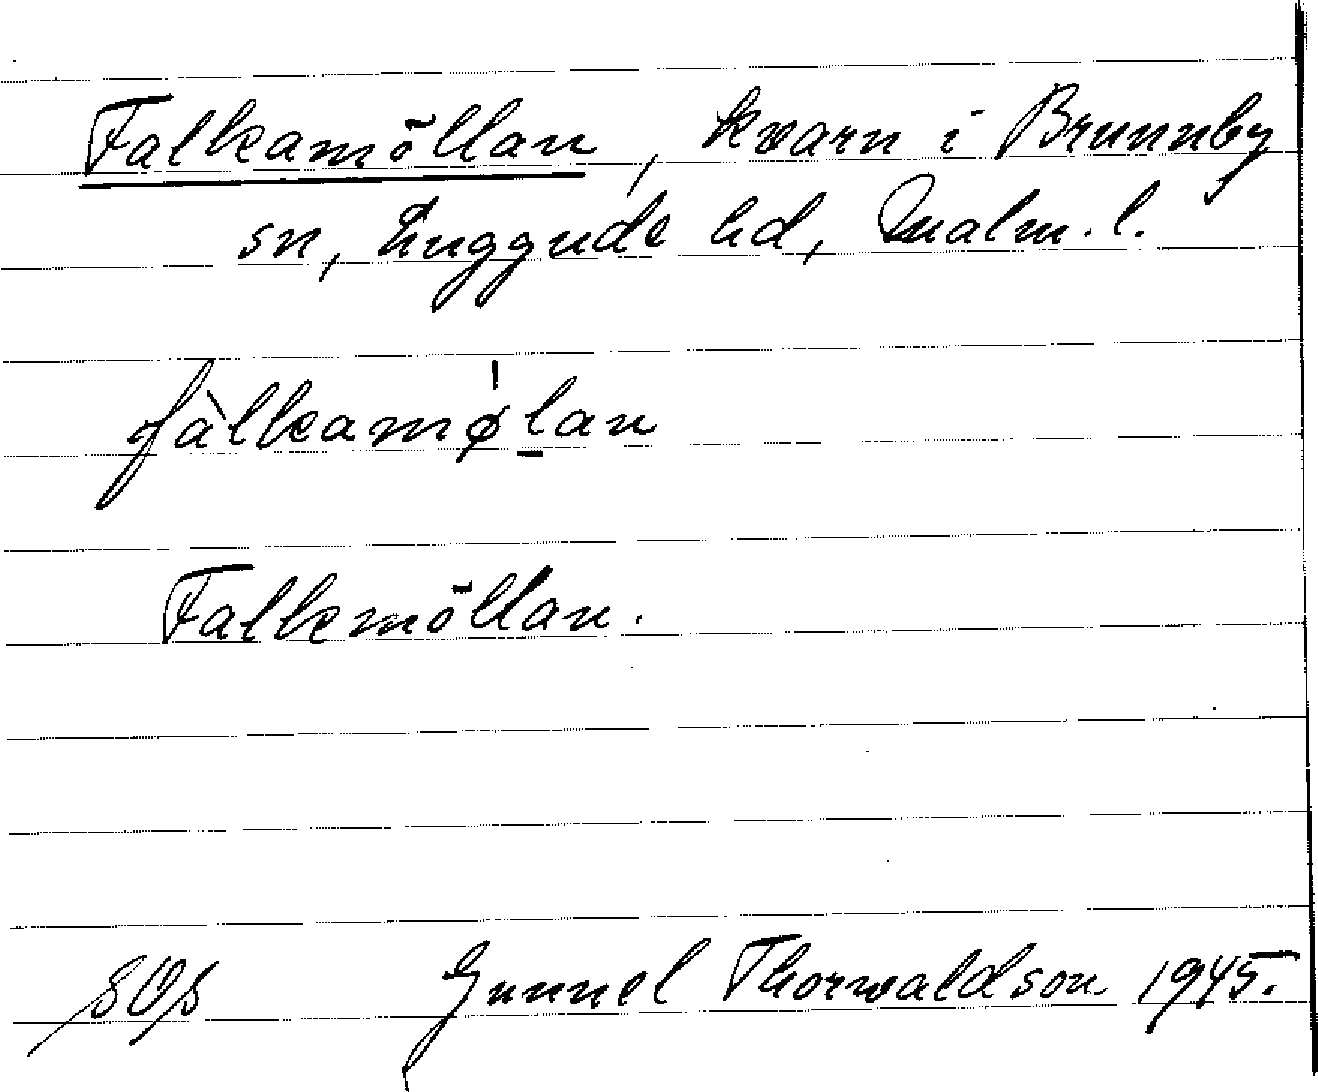 Falkamöllan, kvarn i Brunnby
sn, Luggude hd, Malm. l.
fàlkamø̍l̠an
Falkemöllan.
SOS Gunnel Thorwaldson 1945.